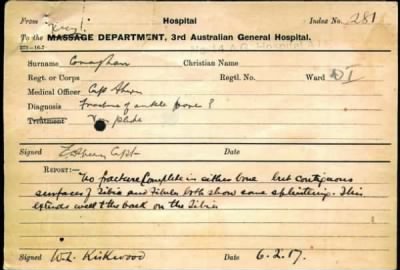 From Hospital Index No. 281
X-ray
To the MASSAGE DEPARTMENT, 3rd Australian General Hospital.
Surname Conaghan Christian Name
Regt. or Corps Regtl. No. Ward DI
Medical Officer Capt Ahern
Diagnosis Fracture of ankle bone ?
Treatment X ray please
Signed Ahern Capt Date
REPORT:— No fracture complete in either bone but contiguous
surfaces of Tibia and Fibula both show some splintering. This
extends well to the back on the Tibia
Signed W.L. Kirkwood Date 6.2.17.